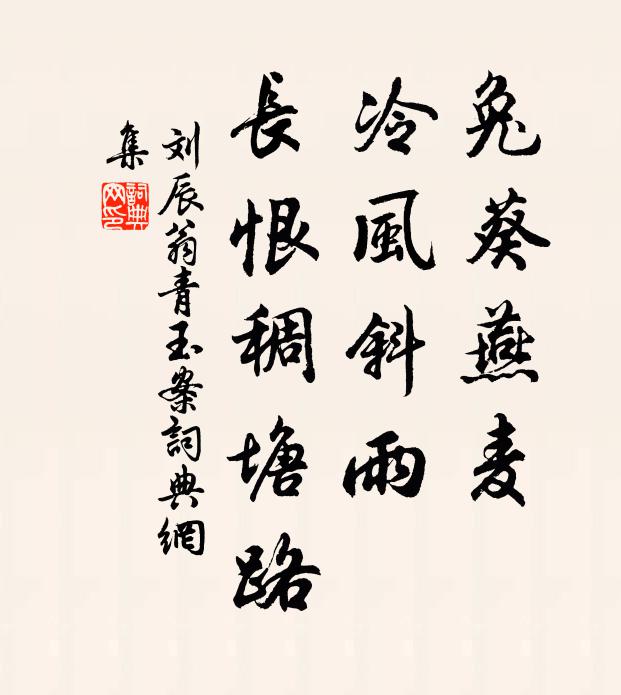 兔葵燕麦
冷風斜雨
長恨稠塘路
刘辰翁青玉案詞典網
集
詞典
网印